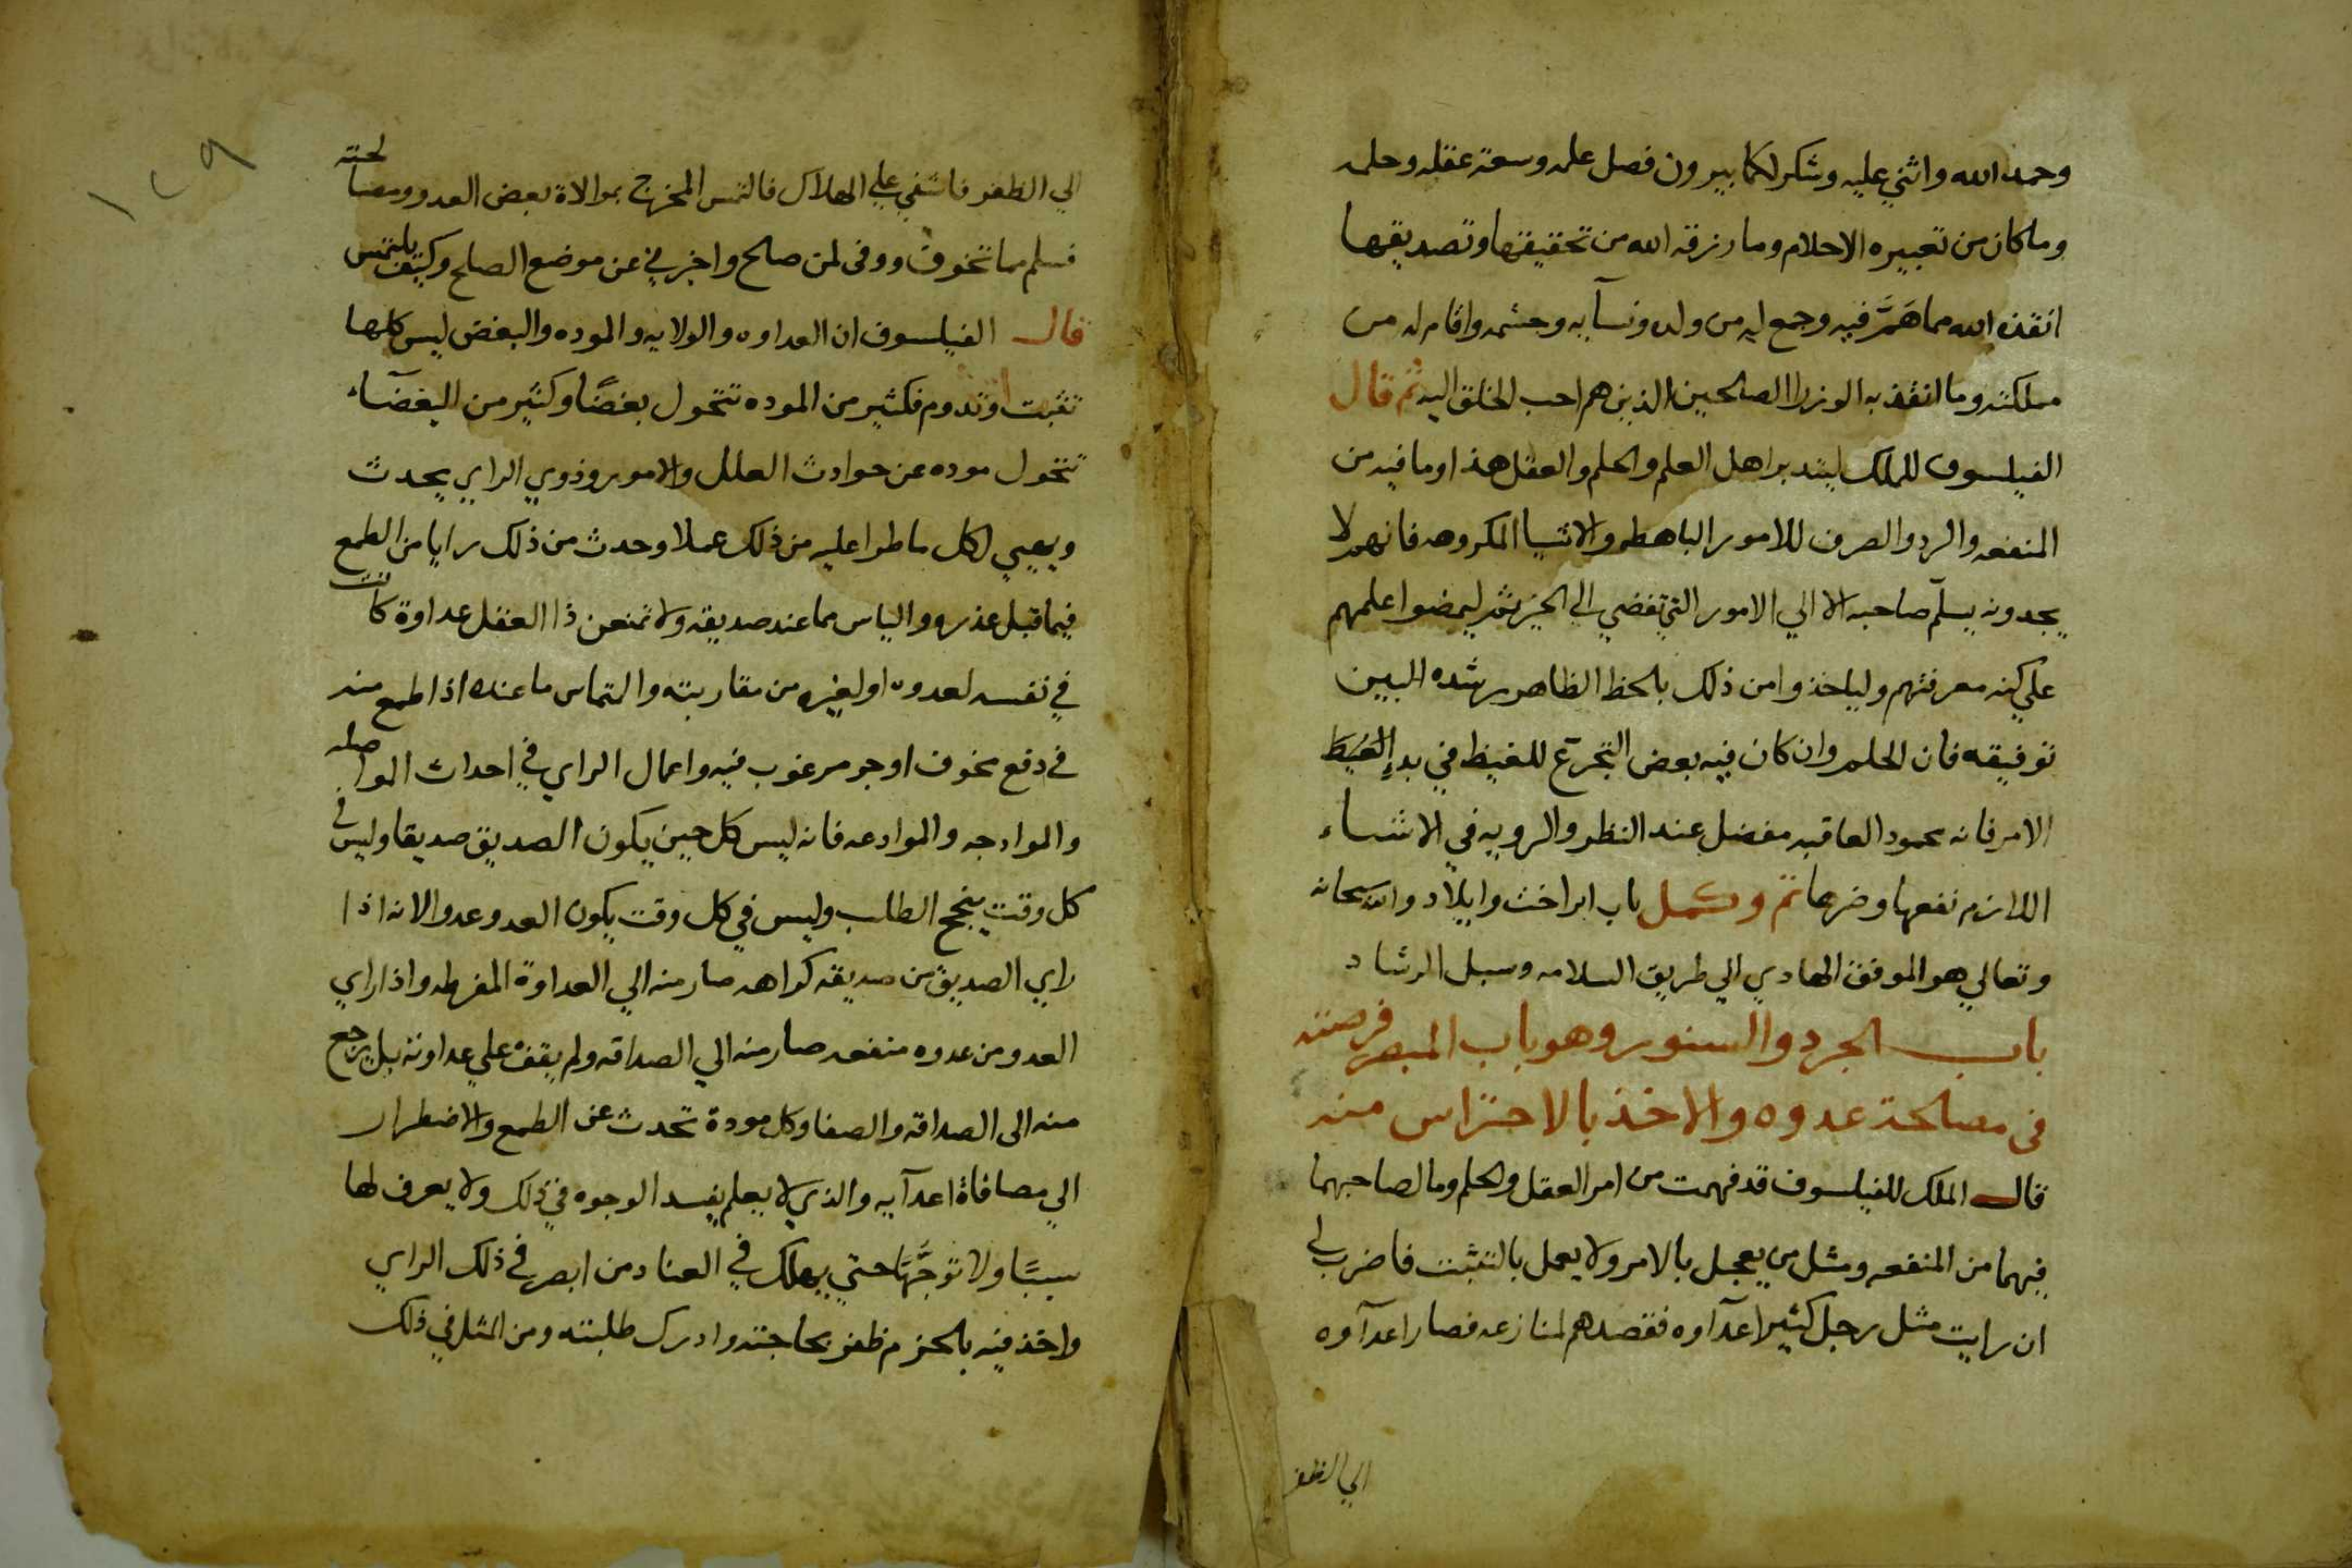 وحمد الله واثني عليه وشكر لكمابيرون فصل علمه وسعة عقله وحلمه
وما كان من تعبيره الاحلام وما رزقه الله من تحقيقها وتصديقها
انقذه الله مما هَمَّ فيه وجمع له من ولده ونسآيه وحشمه واقام له من
مملكته وما انقذ به الوزرا الصالحين الذين هم احب الخلق اليه ثم قال
الفيلسوف للملك ليتدبر اهل العلم والحلم والعقل هذا وما فيه من
المنفعه والرد والصرف للامور الباهظه والاشيا المكروهه فانهم لا
يجدونه يسلّم صاحبه الا الي الامور التي تفضي الي الخير ثم ليمضوا علمهم
علي كنه معرفتهم ولياخذوا من ذلك بالحظ الظاهر رشده البين
توفيقه فان الحلم وان كان فيه بعض التجرّع للغيظ في بدإ الغيظ
الامر فانه محمود العاقبه مفضل عند النظر والرويه في الاشياء
اللازم نفعها وضرها تم وكمل باب ابراخث وايلاد والله سبحانه
وتعالي هو الموفق الهادي الي طريق السلامه وسبل الرشاد
باب الجرد والسنور وهو باب المبصر فرصته
في مصالحة عدوه والاخذ بالاحتراس منه
قال الملك للفيلسوف قد فهمت من امر العقل والحلم وما لصاحبهما
فيهما من المنفعه ومثل من يعجل بالامر ولا يعمل بالتثبت فاضرب لي
ان رايت مثل رجل كثير اعدآوه فقصدهم لمنازعه فصار اعدآوه
الي الظفر
١٢٩
الي الظفر فاشفي علي الهلاك فالتمس المخرج بموالاة بعض العدو ومصالحته
فسلم مما تخوف ووفى لمن صالح واخبرني عن موضع الصلح وكيف يلتمس
قال الفيلسوف ان العداوه والولايه والموده والبغض ليس كلها
تثبت وتدوم فكثير من الموده تتحول بغضًا وكثير من البغضآء
تتحول موده عن حوادث العلل والامور وذوي الراي يحدث
ويهيي لكل ما طرا عليه من ذلك عملا وحدث من ذلك رايا من الطمع
فيما قبل عذره والياس مما عند صديقه ولا تمنعن ذا العقل عداوة كانت
في نفسه لعدوه او لغيره من مقاربته والتماس ما عنده اذا طمع منه
في دفع مخوف او جر مرغوب فيه واعمال الراي في احداث المواصله
والموادجه والموادعه فانه ليس كل حين يكون الصديق صديقا وليس في
كل وقت ينجح الطلب وليس في كل وقت يكون العدو عدوا لانه اذا
راي الصديق من صديقه كراهه صار منه الي العداوة المفرطه واذا راي
العدو من عدوه منفعه صار منه الي الصداقه ولم يقف علي عداوته بل يرجع
منه الى الصداقه والصفا وكل مودة تحدث عن الطمع والاضطرار
الي مصافاة اعدآيه والذي لا يعلم يفسد الوجوه في ذلك ولا يعرف لها
سببًا ولا توجّهًا حتي يهلك في العناد ومن ابصر في ذلك الراي
واخذ فيه بالحزم ظفر بحاجته وادرك طلبته ومن المثل في ذلك